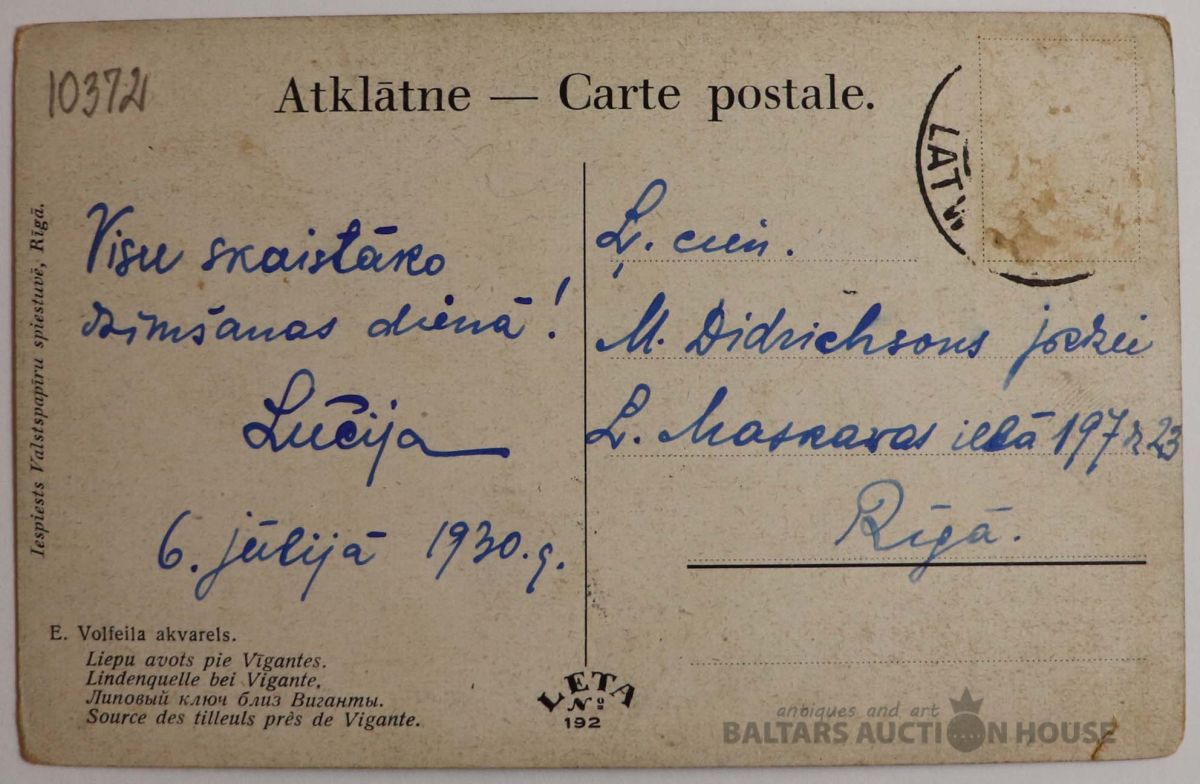 10372
Atklātne — Carte postale.
LATW
Iespiests Valstspapīru spiestuvē, Rīgā.
Visu skaistāko
dzimšanas dienā!
Lūcija
6. jūlijā 1930. g.
Ļ. cien.
M. Didrichsons jaedzei
L. Maskavas ielā 197 dz 23
Rīgā.
E. Volfeila akvarels.
Liepu avots pie Vīgantes.
Lindenquelle bei Vigante.
Липовый ключ близ Виганты.
Source des tilleuls près de Vigante.
LETA
№
192
antiques and art
BALTARS AUCTION HOUSE